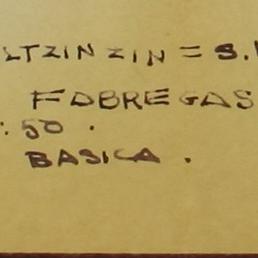 LTZIN ZIN = S.
FABREGAS
: 50 .
BASICA .